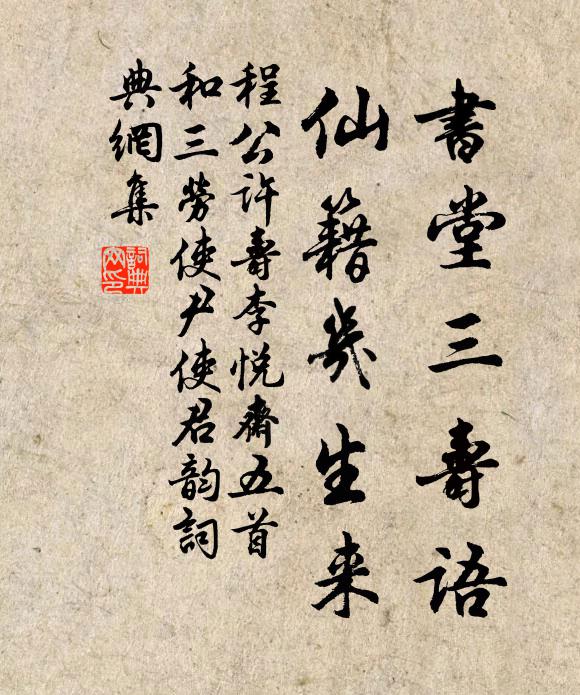 書堂三壽語
仙籍幾生来
程公許壽李悅齋五首
和三勞使尹使君韵詞
典網集
詞典